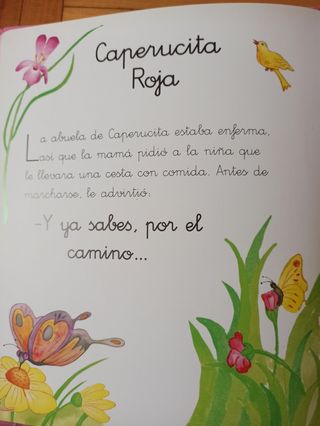 Caperucita
Roja
La abuela de Caperucita estaba enferma,
así que la mamá pidió a la niña que
le llevara una cesta con comida. Antes de
marcharse, le advirtió:
-Y ya sabes, por el
camino...